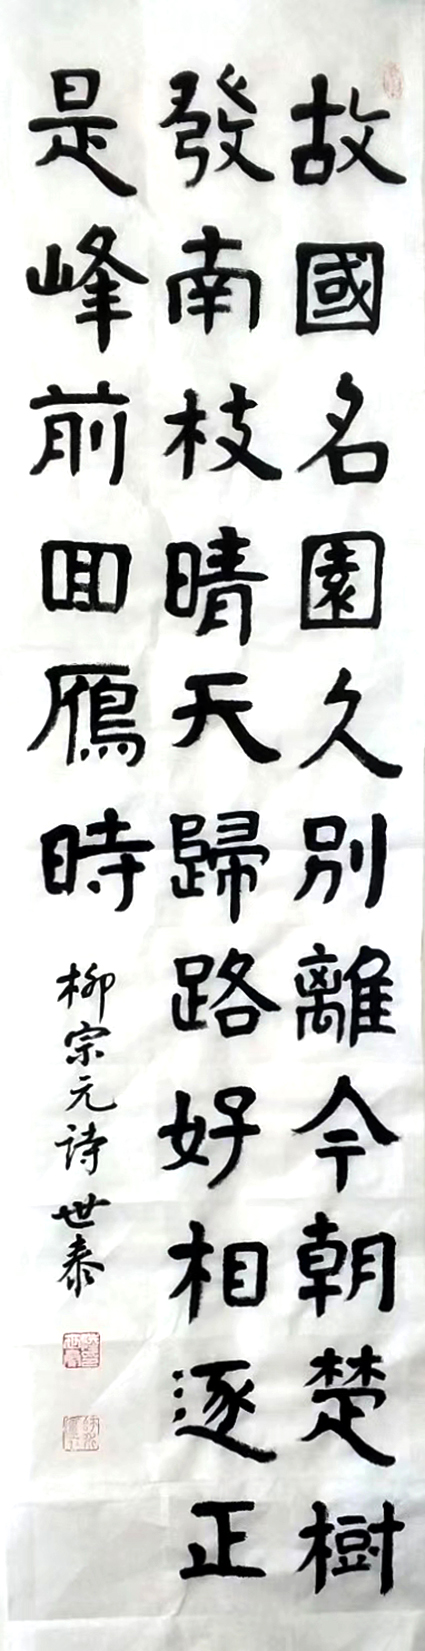 故國名園久別離今朝楚樹
發南枝晴天歸路好相逐正
是峰前回鴈時
柳宗元詩 世泰